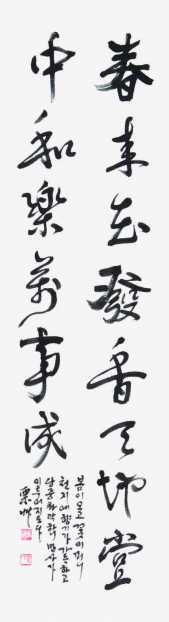 春來花發香天地堂
中和樂萬事成
봄이오고꽃이피니
천지에향기가가득하고
당중화락하니만사가
이루어지도다